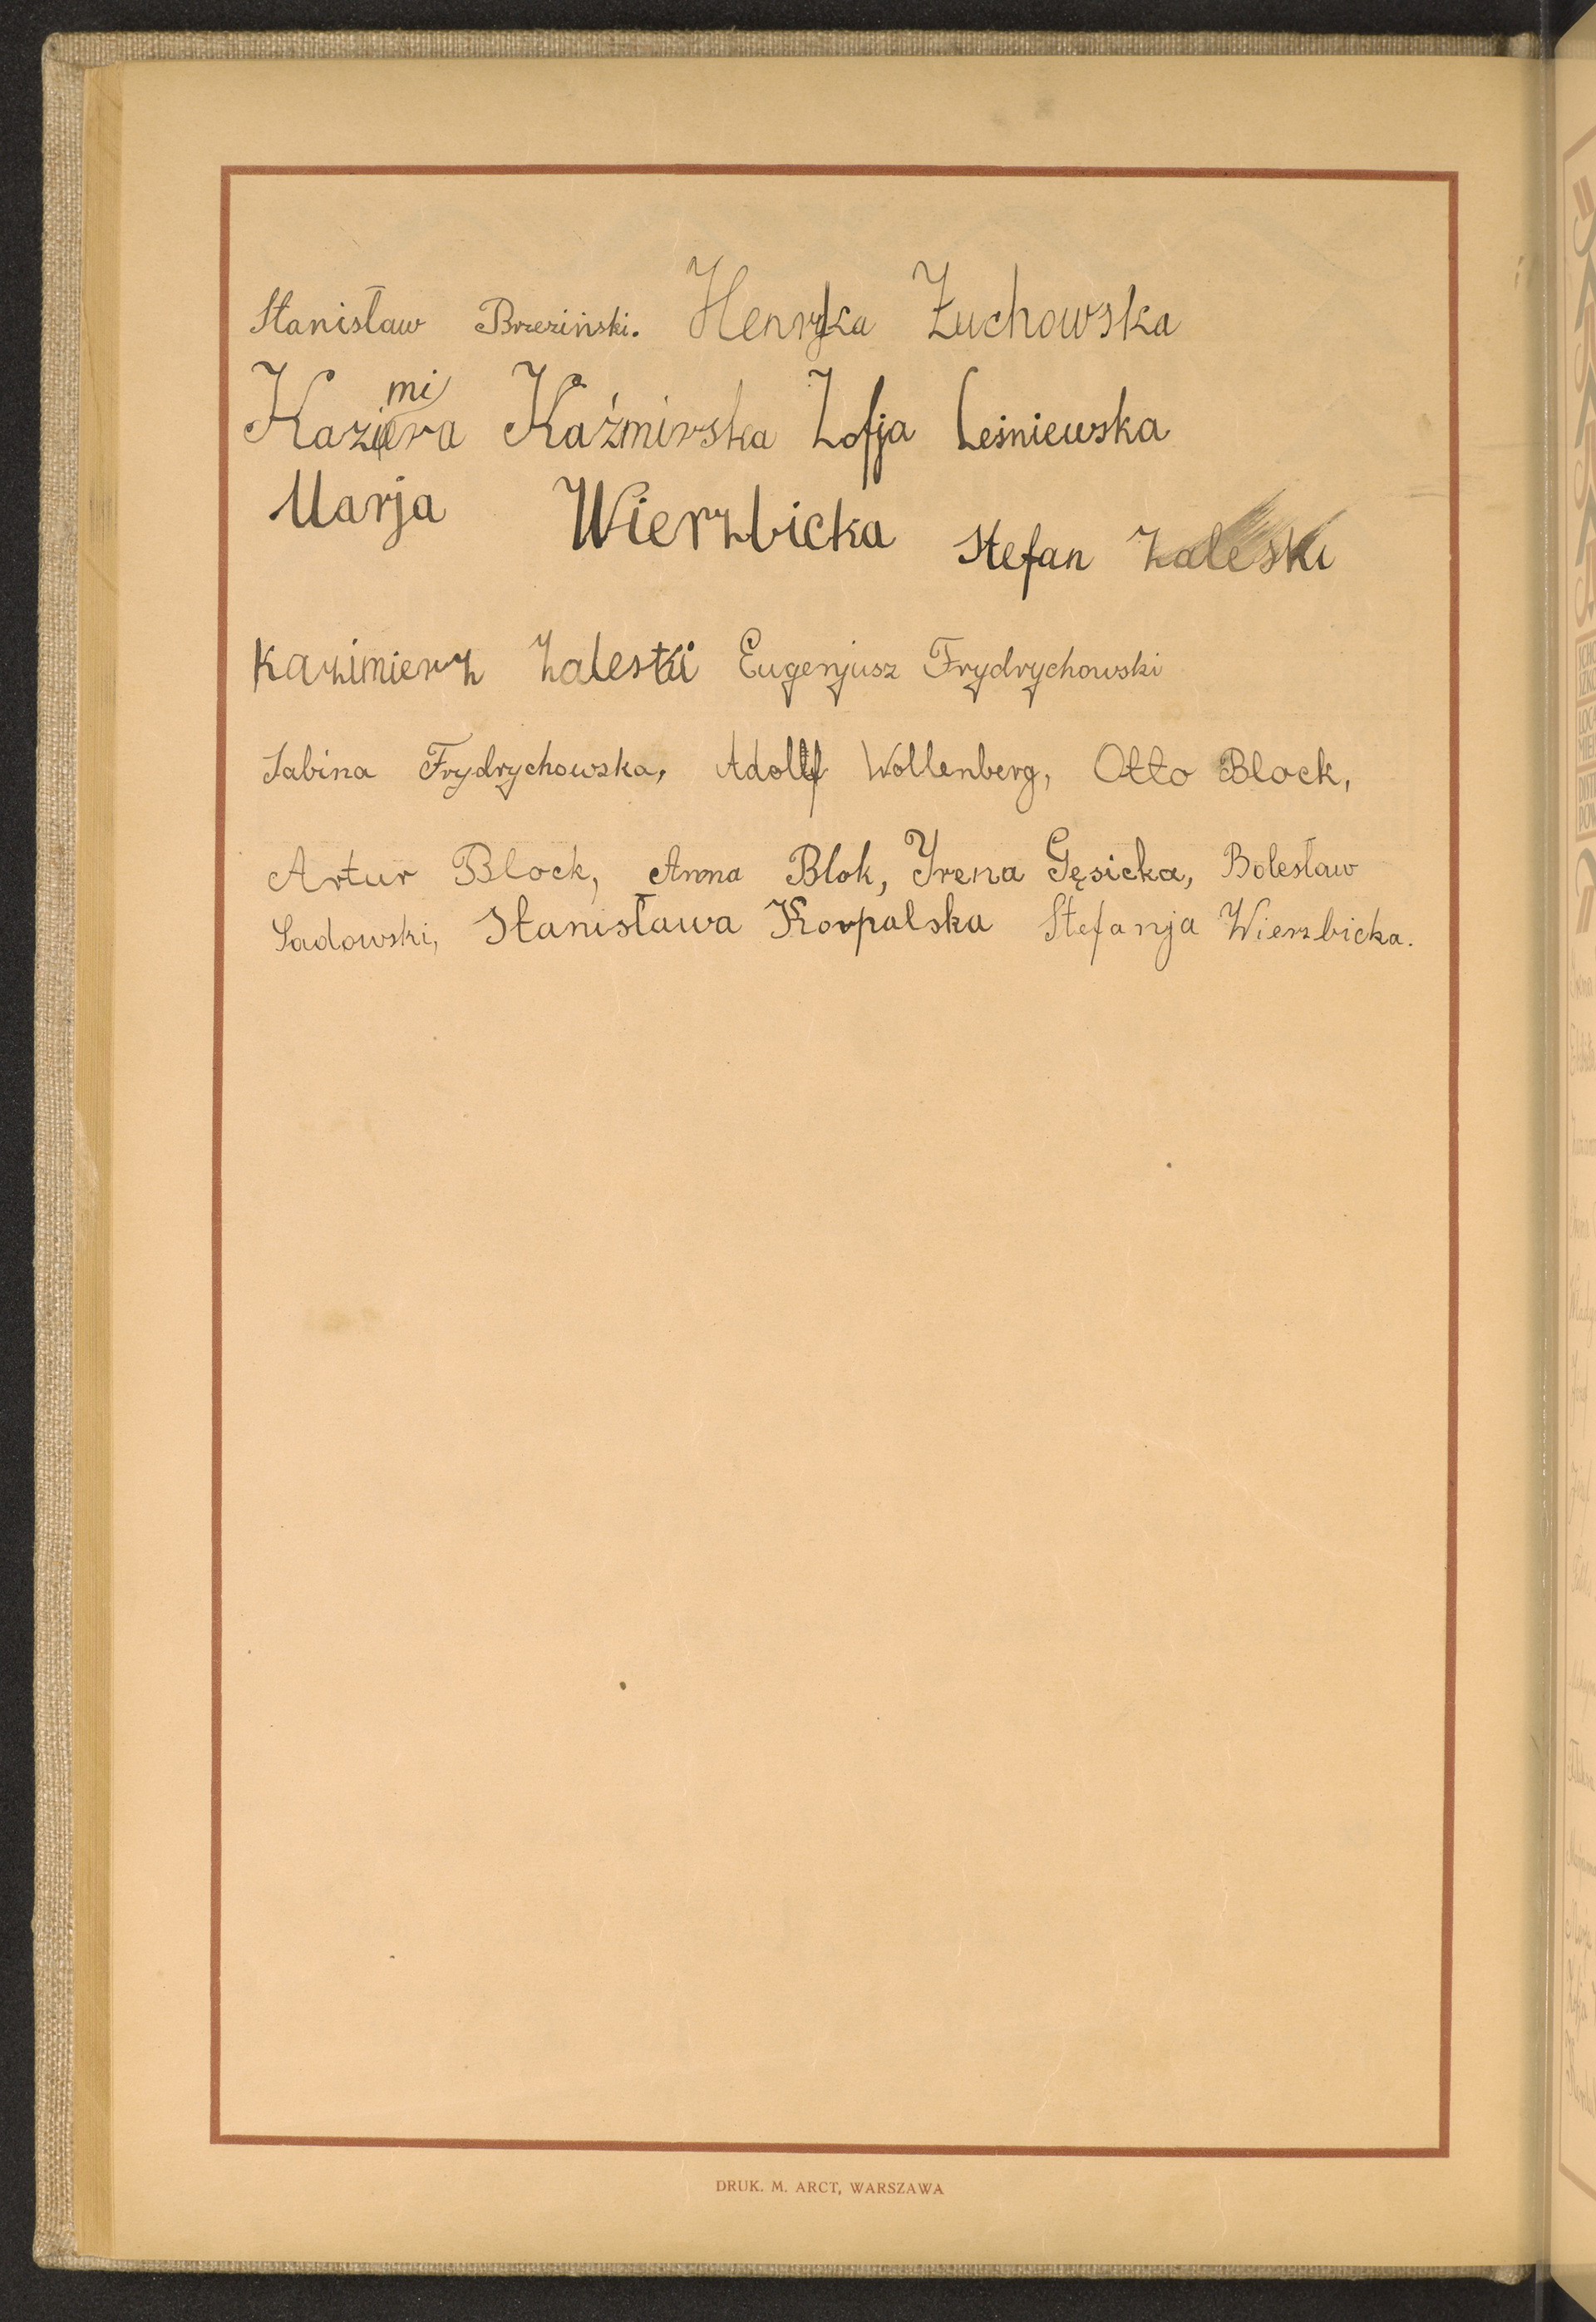 Stanisław Brzeziński. Henryka Żuchowska
Kazimiera Kaźmirska Zofja Leśniewska
Marja Wierzbicka Stefan Zaleski
Kazimierz Zaleski Eugenjusz Frydrychowski
Sabina Frydrychowska, Adolf Wollenberg, Otto Block,
Artur Block, Anna Blok, Yrena Gęsicka, Bolesław
Sadowski, Stanisława Korpalska Stefanja Wierzbicka.
DRUK. M. ARCT, WARSZAWA